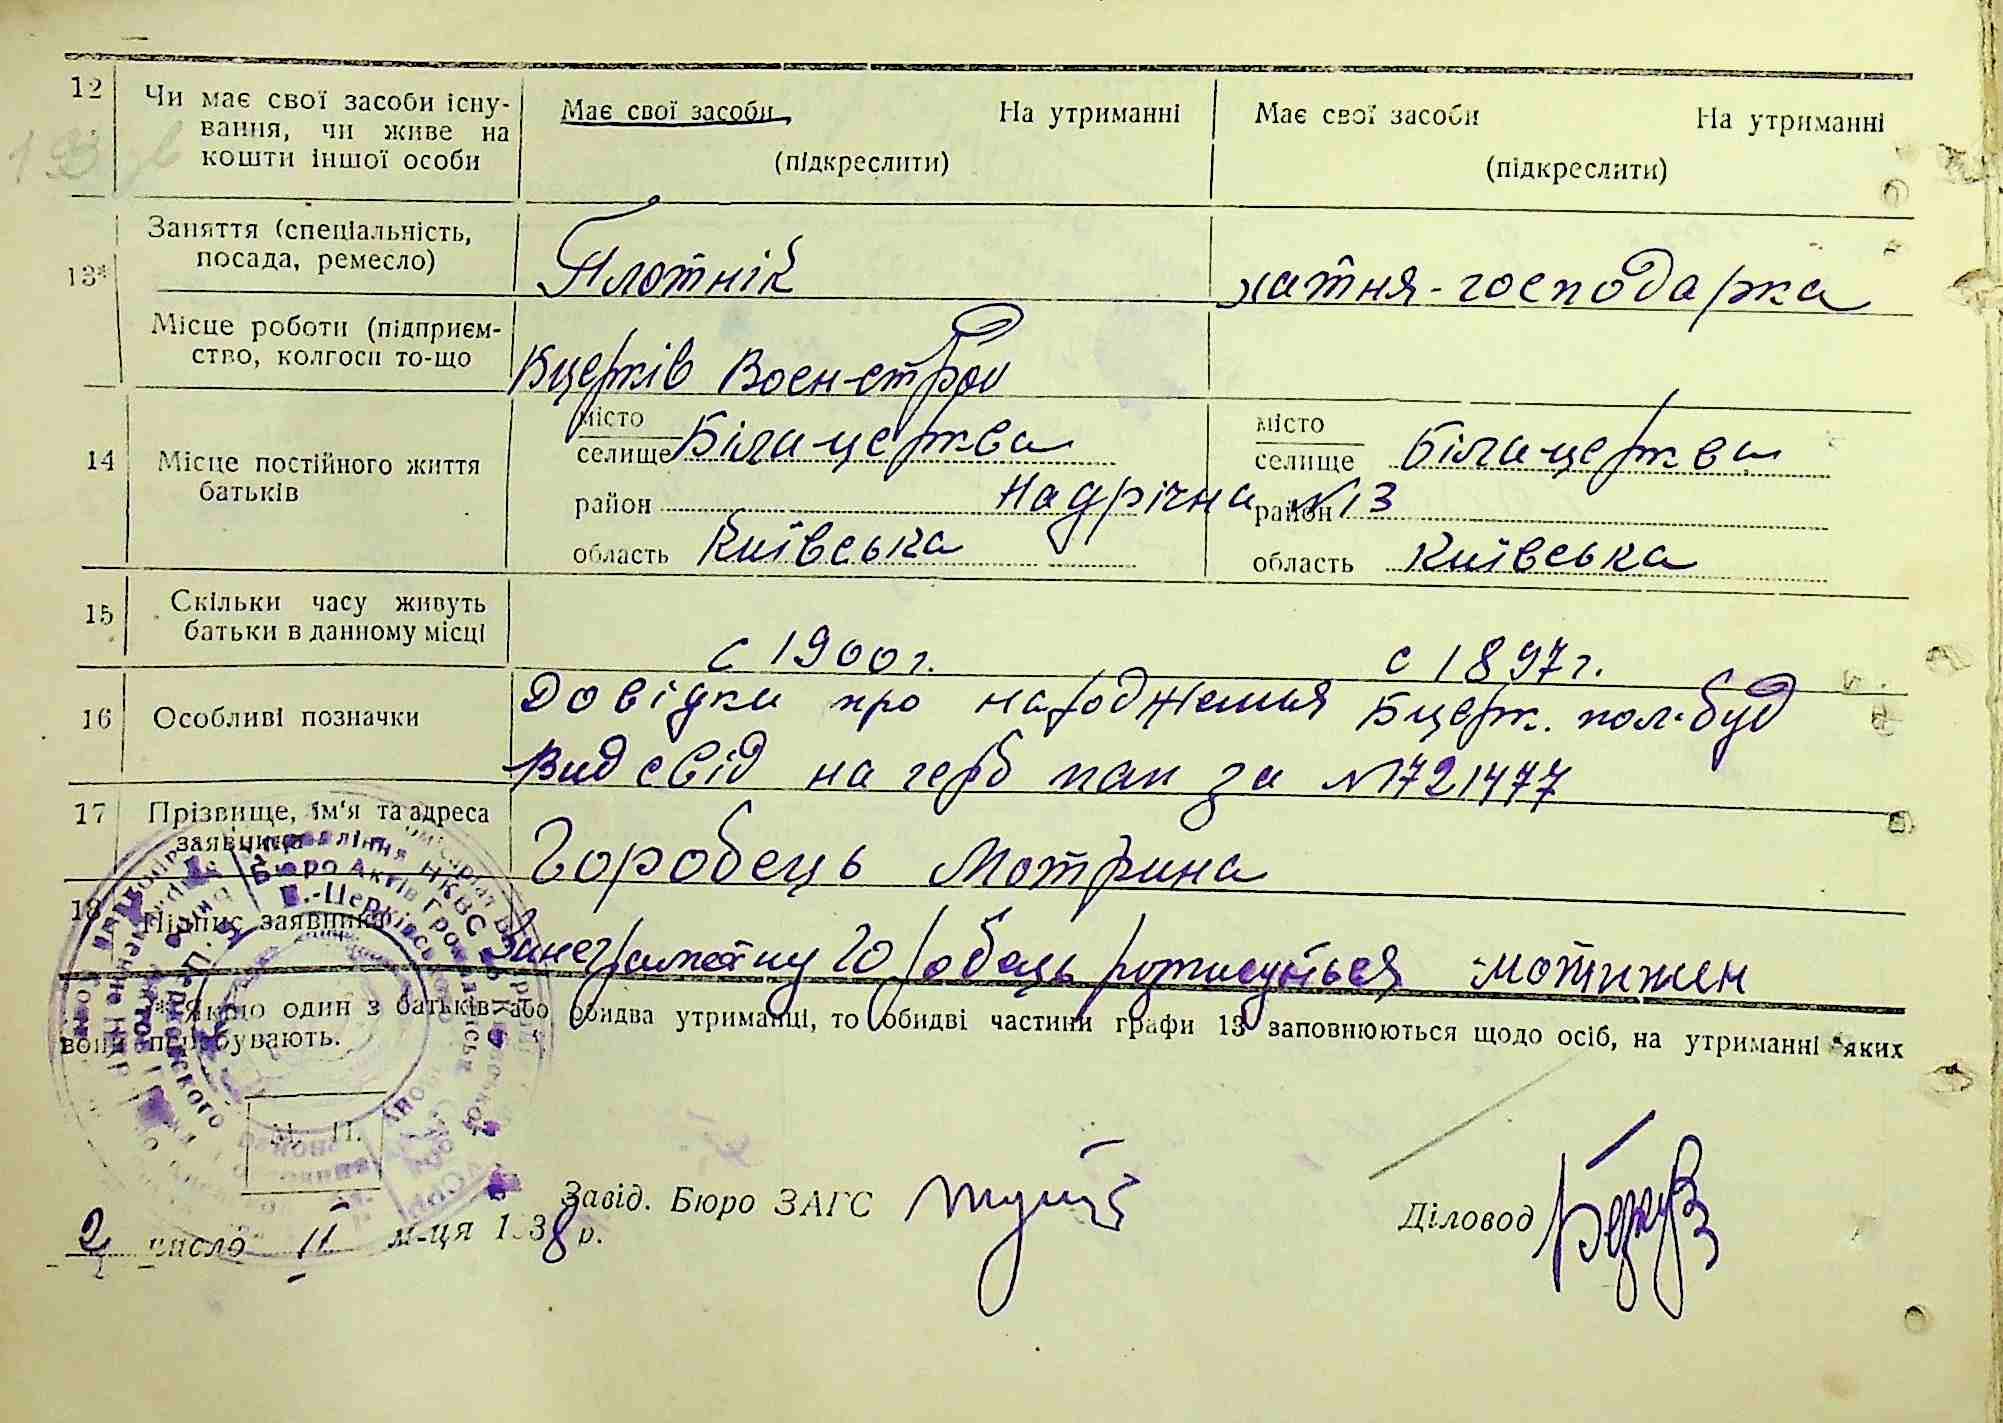 12 Чи має свої засоби існу-
вання, чи живе на
кошти іншої особи
Має свої засоби На утриманні
(підкреслити)
Має свої засоби На утриманні
(підкреслити)
13* Заняття (спеціальність,
посада, ремесло)
Плотнік
хатня-господарка
Місце роботи (підприєм-
ство, колгосп то-що
Бцерків Воєн-строй
14 Місце постійного життя
батьків
місто
селище Білацерква
район Надрічна №13
область Київська
місто
селище Білацерква
район
область Київська
15 Скільки часу живуть
батьки в данному місці
с 1900г.
с 1897г.
16 Особливі позначки
Довідки про народження Бцерк. пол.буд
Вид свід на герб пап за №721477
17 Прізвище, ім'я та адреса
заявника
Горобець Мотрина
18 Підпис заявника
Занеграмотну Горобець розписується
* Якщо один з батьків або обидва утриманці, то обидві частини графи 13 заповнюються щодо осіб, на утриманні яких
вони перебувають.
М. П.
Завід. Бюро ЗАГС
Діловод
2 число 11 м-ця 1938 р.